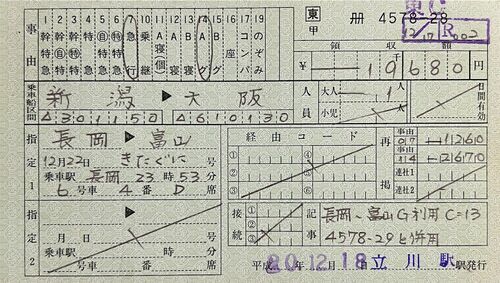 東 冊 4578-28
甲
東C
12/17 R002
事由
1 幹特
2 幹自
3 特急
5 自
6 特
7 急行
10 乗継
11 A寝(個)
12 A寝
13 B寝
14 A
15 B
16 座
17 コンパ
19 のぞみ
領収額
¥ 19680
千 円
乗車船区間
新潟 ▶ 大阪
4301150 4610130
人員
大人 1人
小児
日間有効
指定1
長岡 ▶ 富山
12月22日 きたぐに 号
乗車駅 長岡 23時53分
6号車 4番 D席
経由コード
① ② ③ ④ ⑤ ⑥
再掲
事由 017 12610
事由 114 12670
連社1
連社2
指定2
▶
月 日 号
乗車駅 時 分
号車 番 席
接続
① ② ③
記事
長岡〜富山G利用C=13
4578-29と併用
平成 20.12.18 立川駅 駅発行
年 月 日